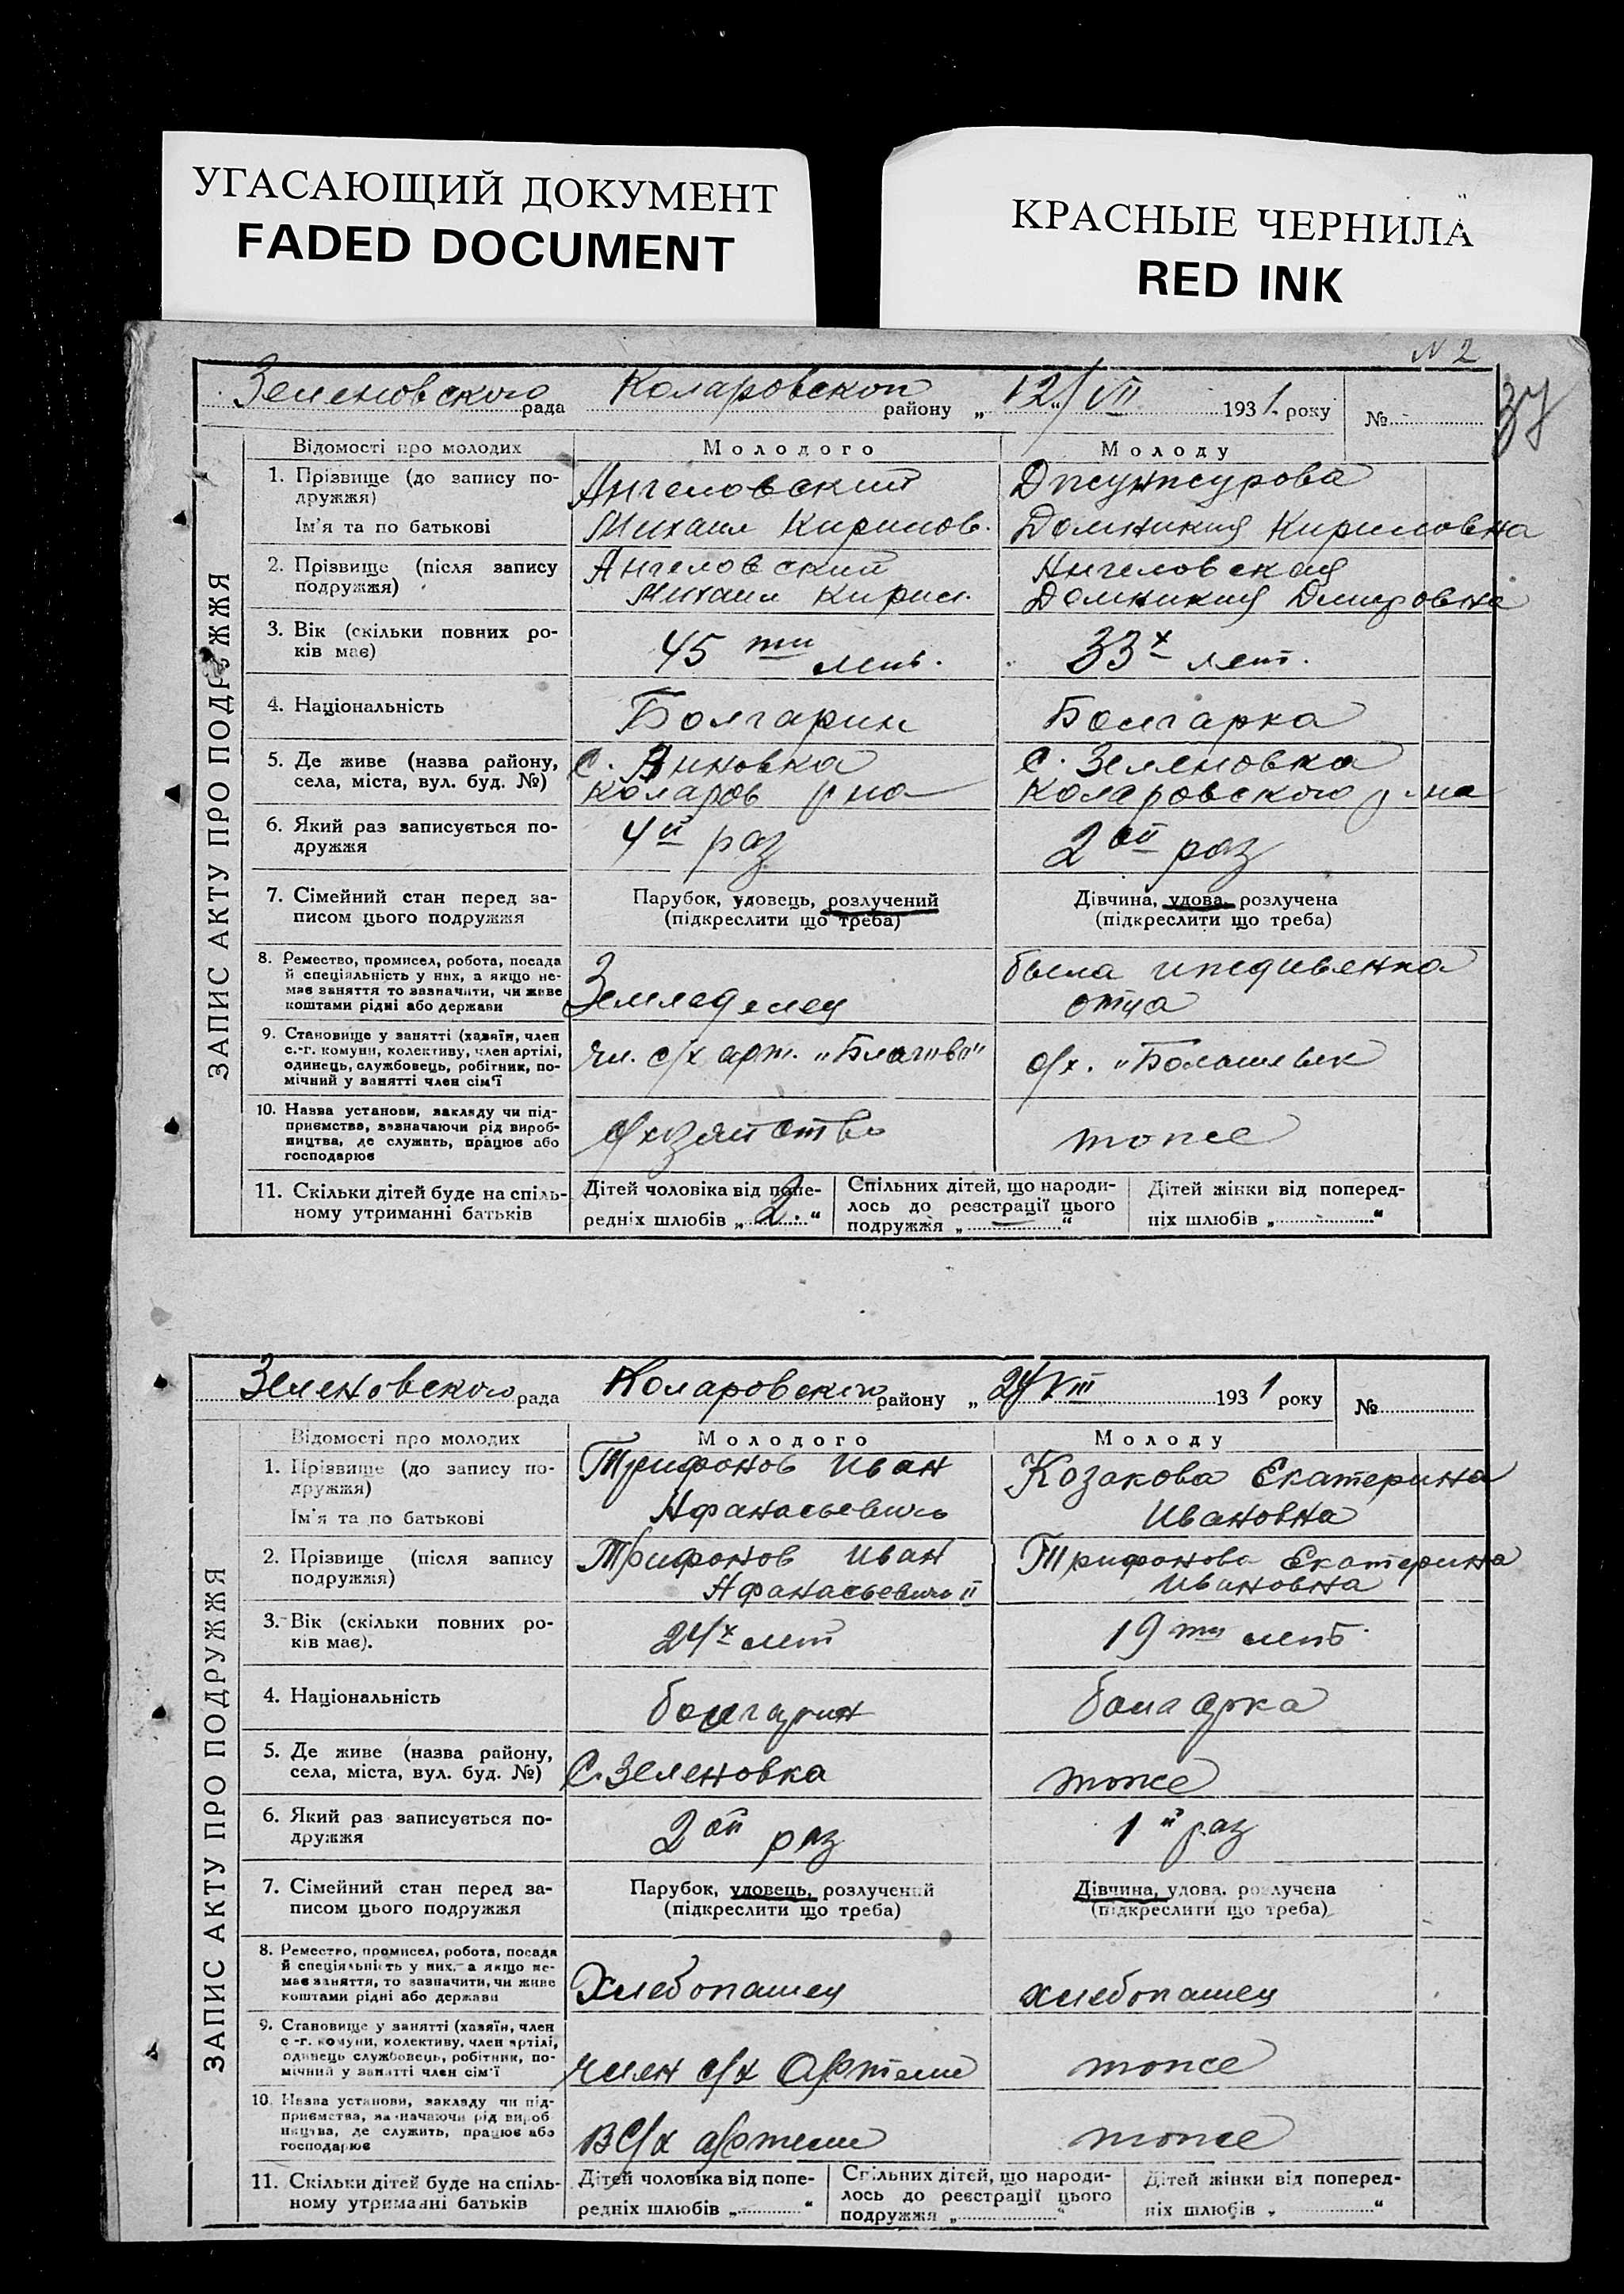 УГАСАЮЩИЙ ДОКУМЕНТ
FADED DOCUMENT
КРАСНЫЕ ЧЕРНИЛА
RED INK
N 2
37
Зеленовского рада Коларовского району „12/VII 1931. року №
ЗАПИС АКТУ ПРО ПОДРУЖЖЯ
Відомості про молодих Молодого Молоду
1. Прізвище (до запису по-
дружжя)
Ангеловский Джунжурова
Ім'я та по батькові Михаил Кирилов. Домникия Кириловна
2. Прізвище (після запису
подружжя)
Ангеловский Ангеловская
Михаил Кирил. Домникия
3. Вік (скільки повних ро-
ків має)
45 ти лет. 33х лет.
4. Національність Болгарин Болгарка
5. Де живе (назва району,
села, міста, вул. буд. №)
с. Иновка с. Зеленовка
Коларов р на Коларовского р-на
6. Який раз записується по-
дружжя
4й раз 2ой раз
7. Сімейний стан перед за-
писом цього подружжя
Парубок, удовець, розлучений Дівчина, удова, розлучена
(підкреслити що треба) (підкреслити що треба)
8. Ремество, промисел, робота, посада
й спеціяльність у них, а якщо не-
має заняття то зазначити, чи живе
коштами рідні або держави
Земледелец была иждивенка
отца
9. Становище у занятті (хазяїн, член
с.-г. комуни, колективу, член артілі,
одинець, службовець, робітник, по-
мічний у занятті член сім'ї
чл. с/х арт. с/х. „Большевик
10. Назва установи, закладу чи під-
приємства, зазначаючи рід вироб-
ництва, де служить, працює або
господарює
с/хозяйство тоже
11. Скільки дітей буде на спіль-
ному утриманні батьків
Дітей чоловіка від попе-
редніх шлюбів „ 2. “
Спільних дітей, що народи-
лось до реєстрації цього
подружжя „ — “
Дітей жінки від поперед-
ніх шлюбів „ “
Зеленовского рада Коларовского району „24/VIII 1931 року №
ЗАПИС АКТУ ПРО ПОДРУЖЖЯ
Відомості про молодих Молодого Молоду
1. Прізвище (до запису по-
дружжя)
Трифонов Иван Козакова Екатерина
Ім'я та по батькові Афанасьевич Ивановна
2. Прізвище (після запису
подружжя)
Трифонов Иван Трифонова Екатерина
Афанасьевич II Ивановна
3. Вік (скільки повних ро-
ків має).
24х лет 19 ти лет
4. Національність болгарин болгарка
5. Де живе (назва району,
села, міста, вул. буд. №)
С. Зеленовка тоже
6. Який раз записується по-
дружжя
2ой раз 1й раз
7. Сімейний стан перед за-
писом цього подружжя
Парубок, удовець, розлучений Дівчина, удова, розлучена
(підкреслити що треба) (підкреслити що треба)
8. Ремество, промисел, робота, посада
й спеціяльність у них, а якщо не-
має заняття, то зазначити, чи живе
коштами рідні або держави
Хлебопашец хлебопашец
9. Становище у занятті (хазяїн, член
с.-г. комуни, колективу, член артілі,
одинець службовець, робітник, по-
мічний у занятті член сім'ї
член с/х Артели тоже
10. Назва установи, закладу чи під-
приємства, зазначаючи рід вироб
ництва, де служить, працює або
господарює
В С/х артели тоже
11. Скільки дітей буде на спіль-
ному утриманні батьків
Дітей чоловіка від попе-
редніх шлюбів „ “
Спільних дітей, що народи-
лось до реєстрації цього
подружжя „ “
Дітей жінки від поперед-
ніх шлюбів „ “